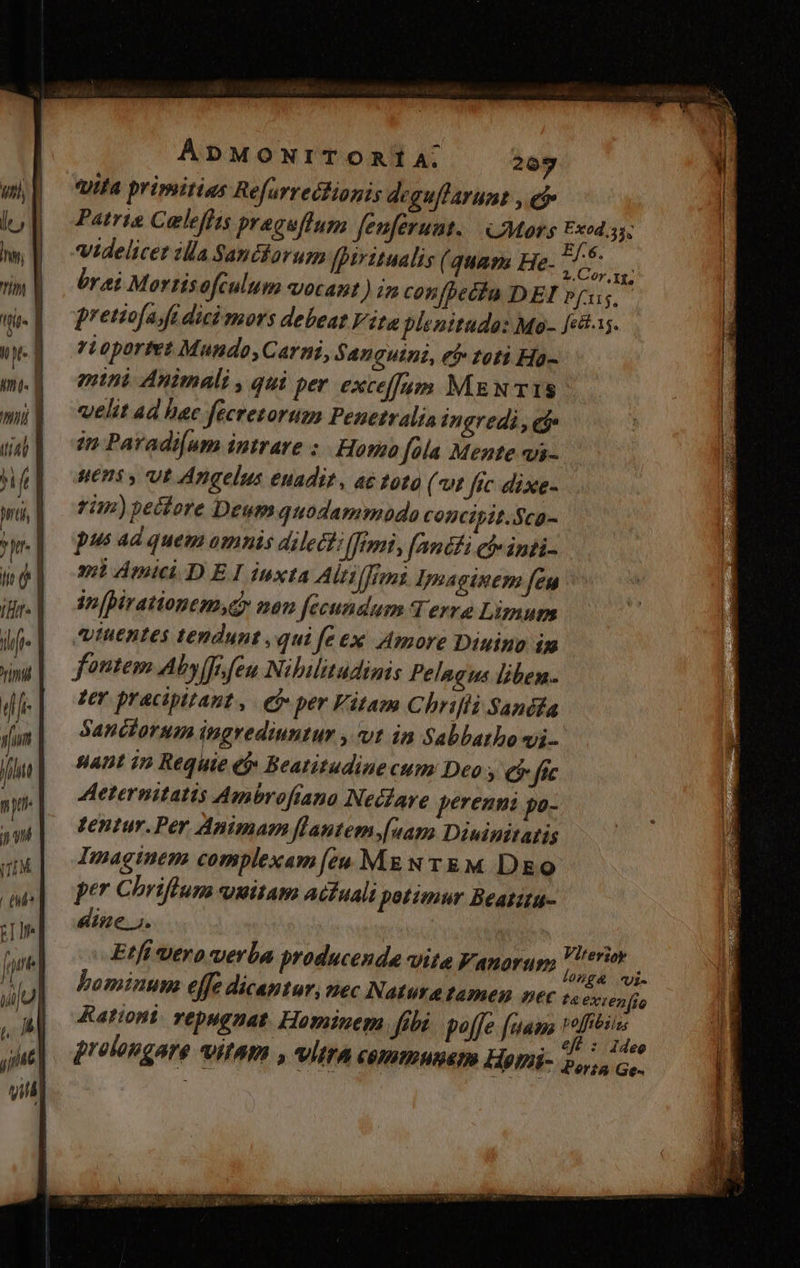 ADMONITORIA. 209
vita primitias Resurrectionis degustarunt, &
Patriæ Cælestis prægustum senserunt. Mors
videlicet illa Sanctorum spiritualis (quam He-
brai Mortis osculum vocant) in conspectu DEI
pretiosa, si dici mors debeat Vitæ plenitudo: Mo-
ri oportet Mundo, Carni, Sanguini, & toti Ho-
mini Animali, qui per excessum MENTIS
velit ad hæc secretorum Penetralia ingredi, &
in Paradisum intrare: Homo sola Mente vi-
uens, vt Angelus euadit, ac toto (vt sic dixe-
rim) pectore Deum quodammodo concipit. Sco-
pus ad quem omnis dilectissimi, sancti & inti-
mi Amici DEI iuxta Altissimi Imaginem seu
inspirationem, & non secundum Terræ Limum
viuentes tendunt, qui se ex Amore Diuino in
fontem Abyssi, seu Nihilitudinis Pelagus liben-
ter præcipitant, & per Vitam Christi Sancta
Sanctorum ingrediuntur, vt in Sabbatho vi-
uant in Requie & Beatitudine cum Deo, & sic
Aeternitatis Ambrosiano Nectare perenni po-
tentur. Per Animam stantem, suam Diuinitatis
Imaginem complexam seu MENTEM DEO
per Christum vnitam actuali potimur Beatitu-
dine.
Etsi vero verba producendæ vitæ Vanorum
hominum esse dicantur, nec Naturæ tamen nec
Rationi repugnat Hominem sibi posse suam
prolongare vitam, vltra communem Homi-
Exod. 33.
Es. 6.
2. Cor. 12.
Ps. 115.
sect. 15.
Vlterior
longæ vi-
tæ extensio
possibilis
est: Ideo
Porta Ge-